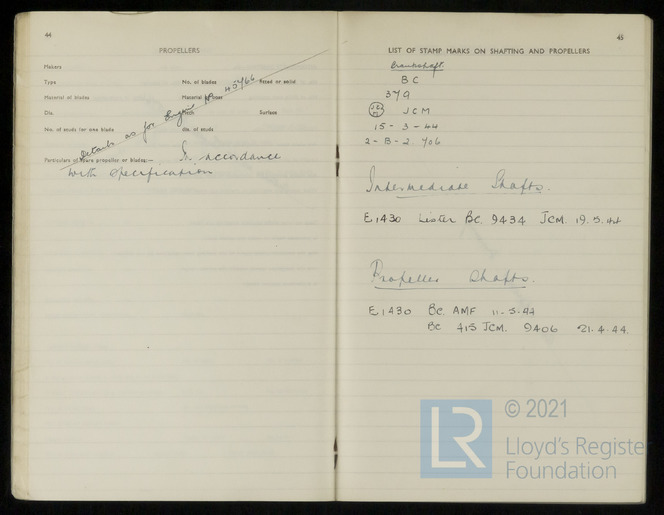 44
PROPELLERS
Makers
Type No. of blades Fixed or solid
Material of blades Material of boss
Dia. Pitch Surface
No. of studs for one blade dia. of studs
Details as for Engine No 45766
Particulars of spare propeller or blades:— In accordance
with specification
45
LIST OF STAMP MARKS ON SHAFTING AND PROPELLERS
Crankshaft
BC
379
JCM
15 - 3 - 44
2 - B - 2. 706
Intermediate Shafts.
E1430 Lister BC. 9434 JCM. 19.5.44
Propeller Shafts.
E1430 BC. AMF 11-5-44
BC 415 JCM. 9406 21.4.44.
LR
© 2021
Lloyd's Register
Foundation